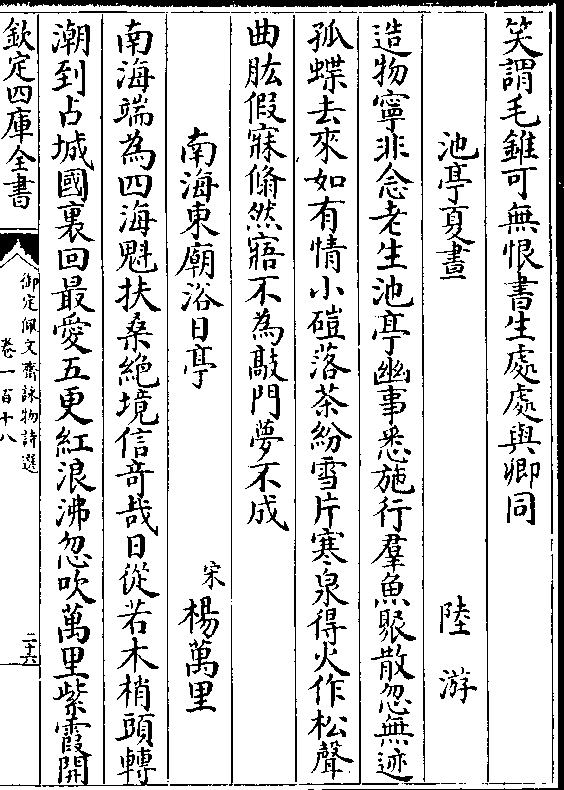 笑謂毛錐可無恨書生處處與卿同
池亭夏晝 陸游
造物寧非念老生池亭幽事悉施行羣魚聚散忽無迹
孤蝶去來如有情小磑落茶紛雪片寒泉得火作松聲
曲肱假寐翛然寤不為敲門夢不成
南海東廟浴日亭 宋楊萬里
南海端為四海魁扶桑絶境信奇哉日從若木梢頭轉
潮到占城國裏回最愛五更紅浪沸忽吹萬里紫霞開
欽定四庫全書
御定佩文齋詠物詩選
卷一百十八
二十六